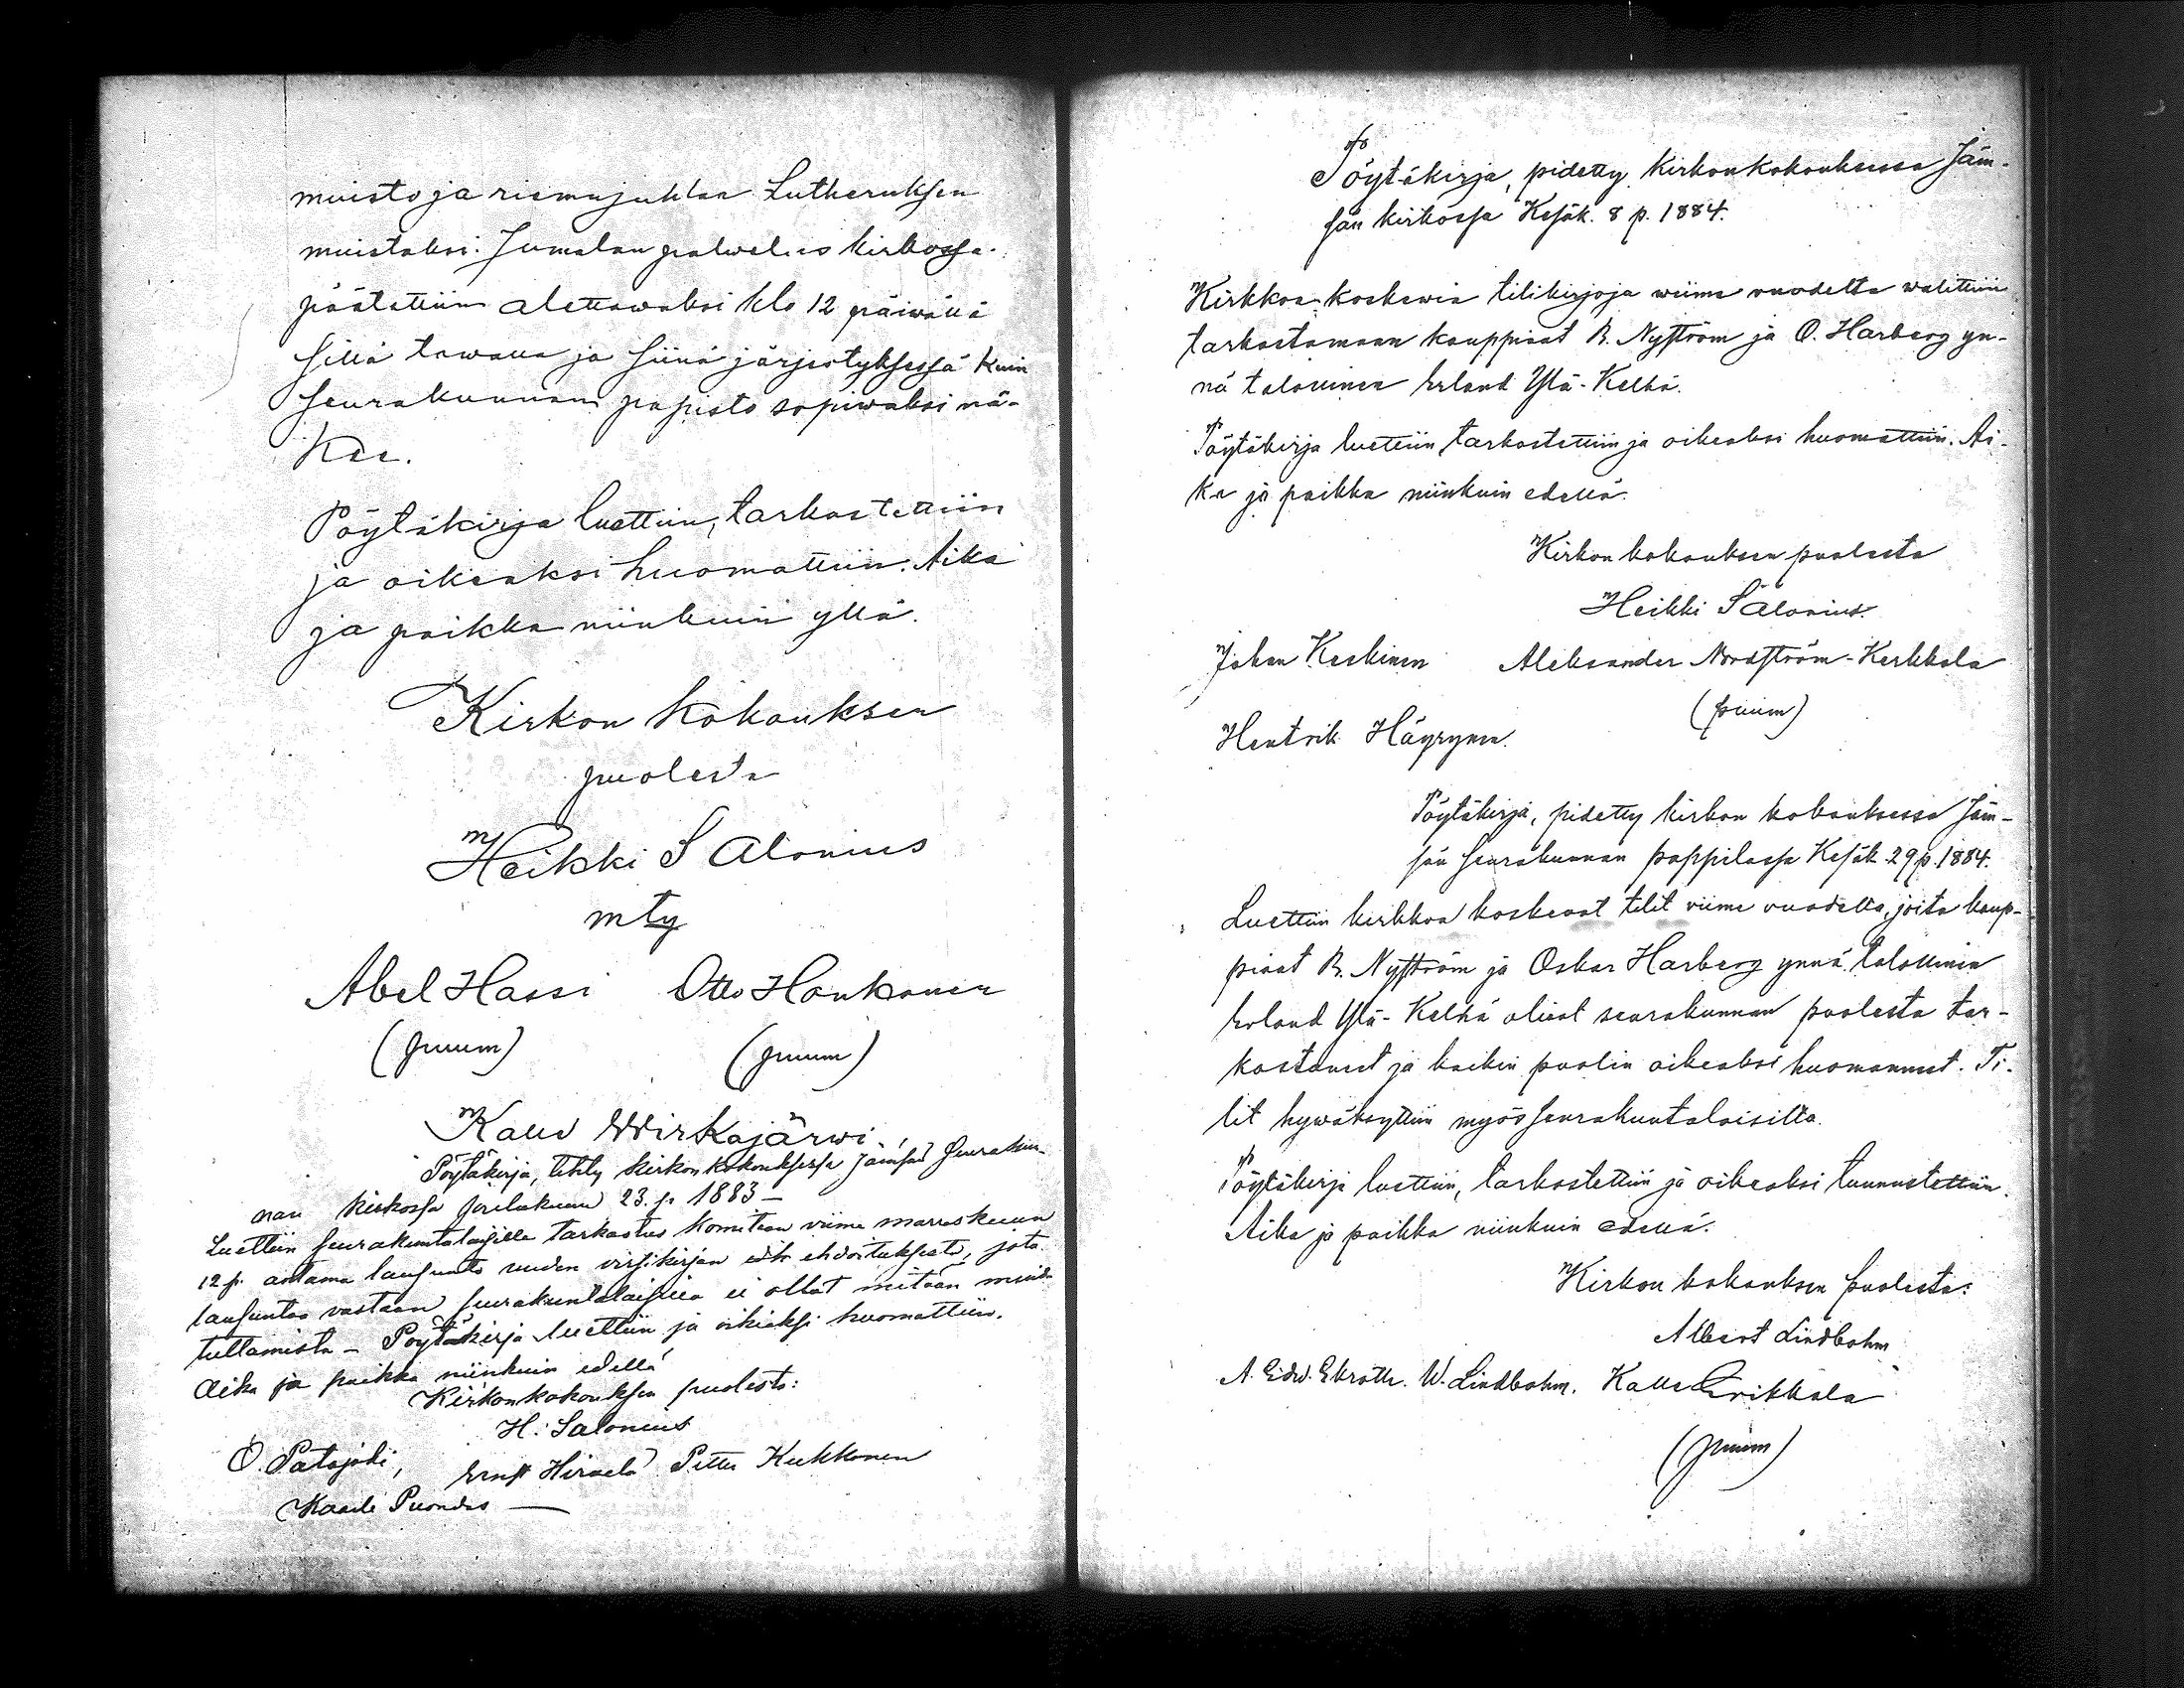 muisto ja riemujuhlaa Lutheruksen
muistoksi. Jumalan palwelus kirkossa
päätettiin alettawaksi klo 12 päiwällä
sillä tawalla ja siinä järjestyksessä kuin
seurakunnan papisto sopiwaksi nä-
kee.
Pöytäkirja luettiin, tarkastettiin
ja oikeaksi huomattiin. Aika
ja paikka niinkuin yllä.
Kirkon kokouksen
puolesta
Heikki Salonius
mty
Abel Hassi Otto Honkanen
(puum) (puum)
Kalle Wirkajärwi
Pöytäkirja, tehty kirkonkokouksessa Jämsän seurakun-
nan kirkossa joulukuun 23. p. 1883 –
Luettiin seurakuntalaisille tarkastus komitean viime marraskuun
12 p. antama lausunto uuden virsikirjan ehdoituksesta, jota
lausuntoa vastaan seurakuntalaisilla ei ollut mitään muis-
tuttamista – Pöytäkirja luettiin ja oikiaksi huomattiin.
Aika ja paikka niinkuin edellä
Kirkonkokouksen puolesta:
H. Salonius
O. Patajoki, Ernst Hirvelä Petter Kukkonen
Kaarle Puondas —
Pöytäkirja, pidetty Kirkonkokouksessa Jäm-
sän kirkossa Kesäk. 8 p. 1884.
Kirkkoa koskewia tilikirjoja wiime vuodelta walittiin
tarkastamaan kauppiaat R. Nyström ja O. Harberg yn-
nä talollinen Erland Ylä-Kelhä.
Pöytäkirja luettiin, tarkastettiin ja oikeaksi huomattiin. Ai-
ka ja paikka niinkuin edellä.
Kirkon kokouksen puolesta
Heikki Salonius.
Johan Keskinen Aleksander Nordström-Kerkkola
(puum)
Hentrik Häyrynen.
Pöytäkirja, pidetty kirkon kokouksessa Jäm-
sän seurakunnan pappilassa Kesäk. 29 p. 1884.
Luettiin kirkkoa koskevat tilit viime vuodelta, joita kaup-
piaat R. Nyström ja Oskar Harberg ynnä talollinen
Erland Ylä-Kelhä olivat seurakunnan puolesta tar-
kastaneet ja kaikin puolin oikeaksi huomanneet. Ti-
lit hywäksyttiin myös seurakuntalaisilta.
Pöytäkirja luettiin, tarkastettiin ja oikeaksi tunnustettiin.
Aika ja paikka niinkuin edellä.
Kirkon kokouksen puolesta:
Albert Lindbohm
A. Edw. Ekroth. W. Lindbohm. Kalle Erikkala
(puum)